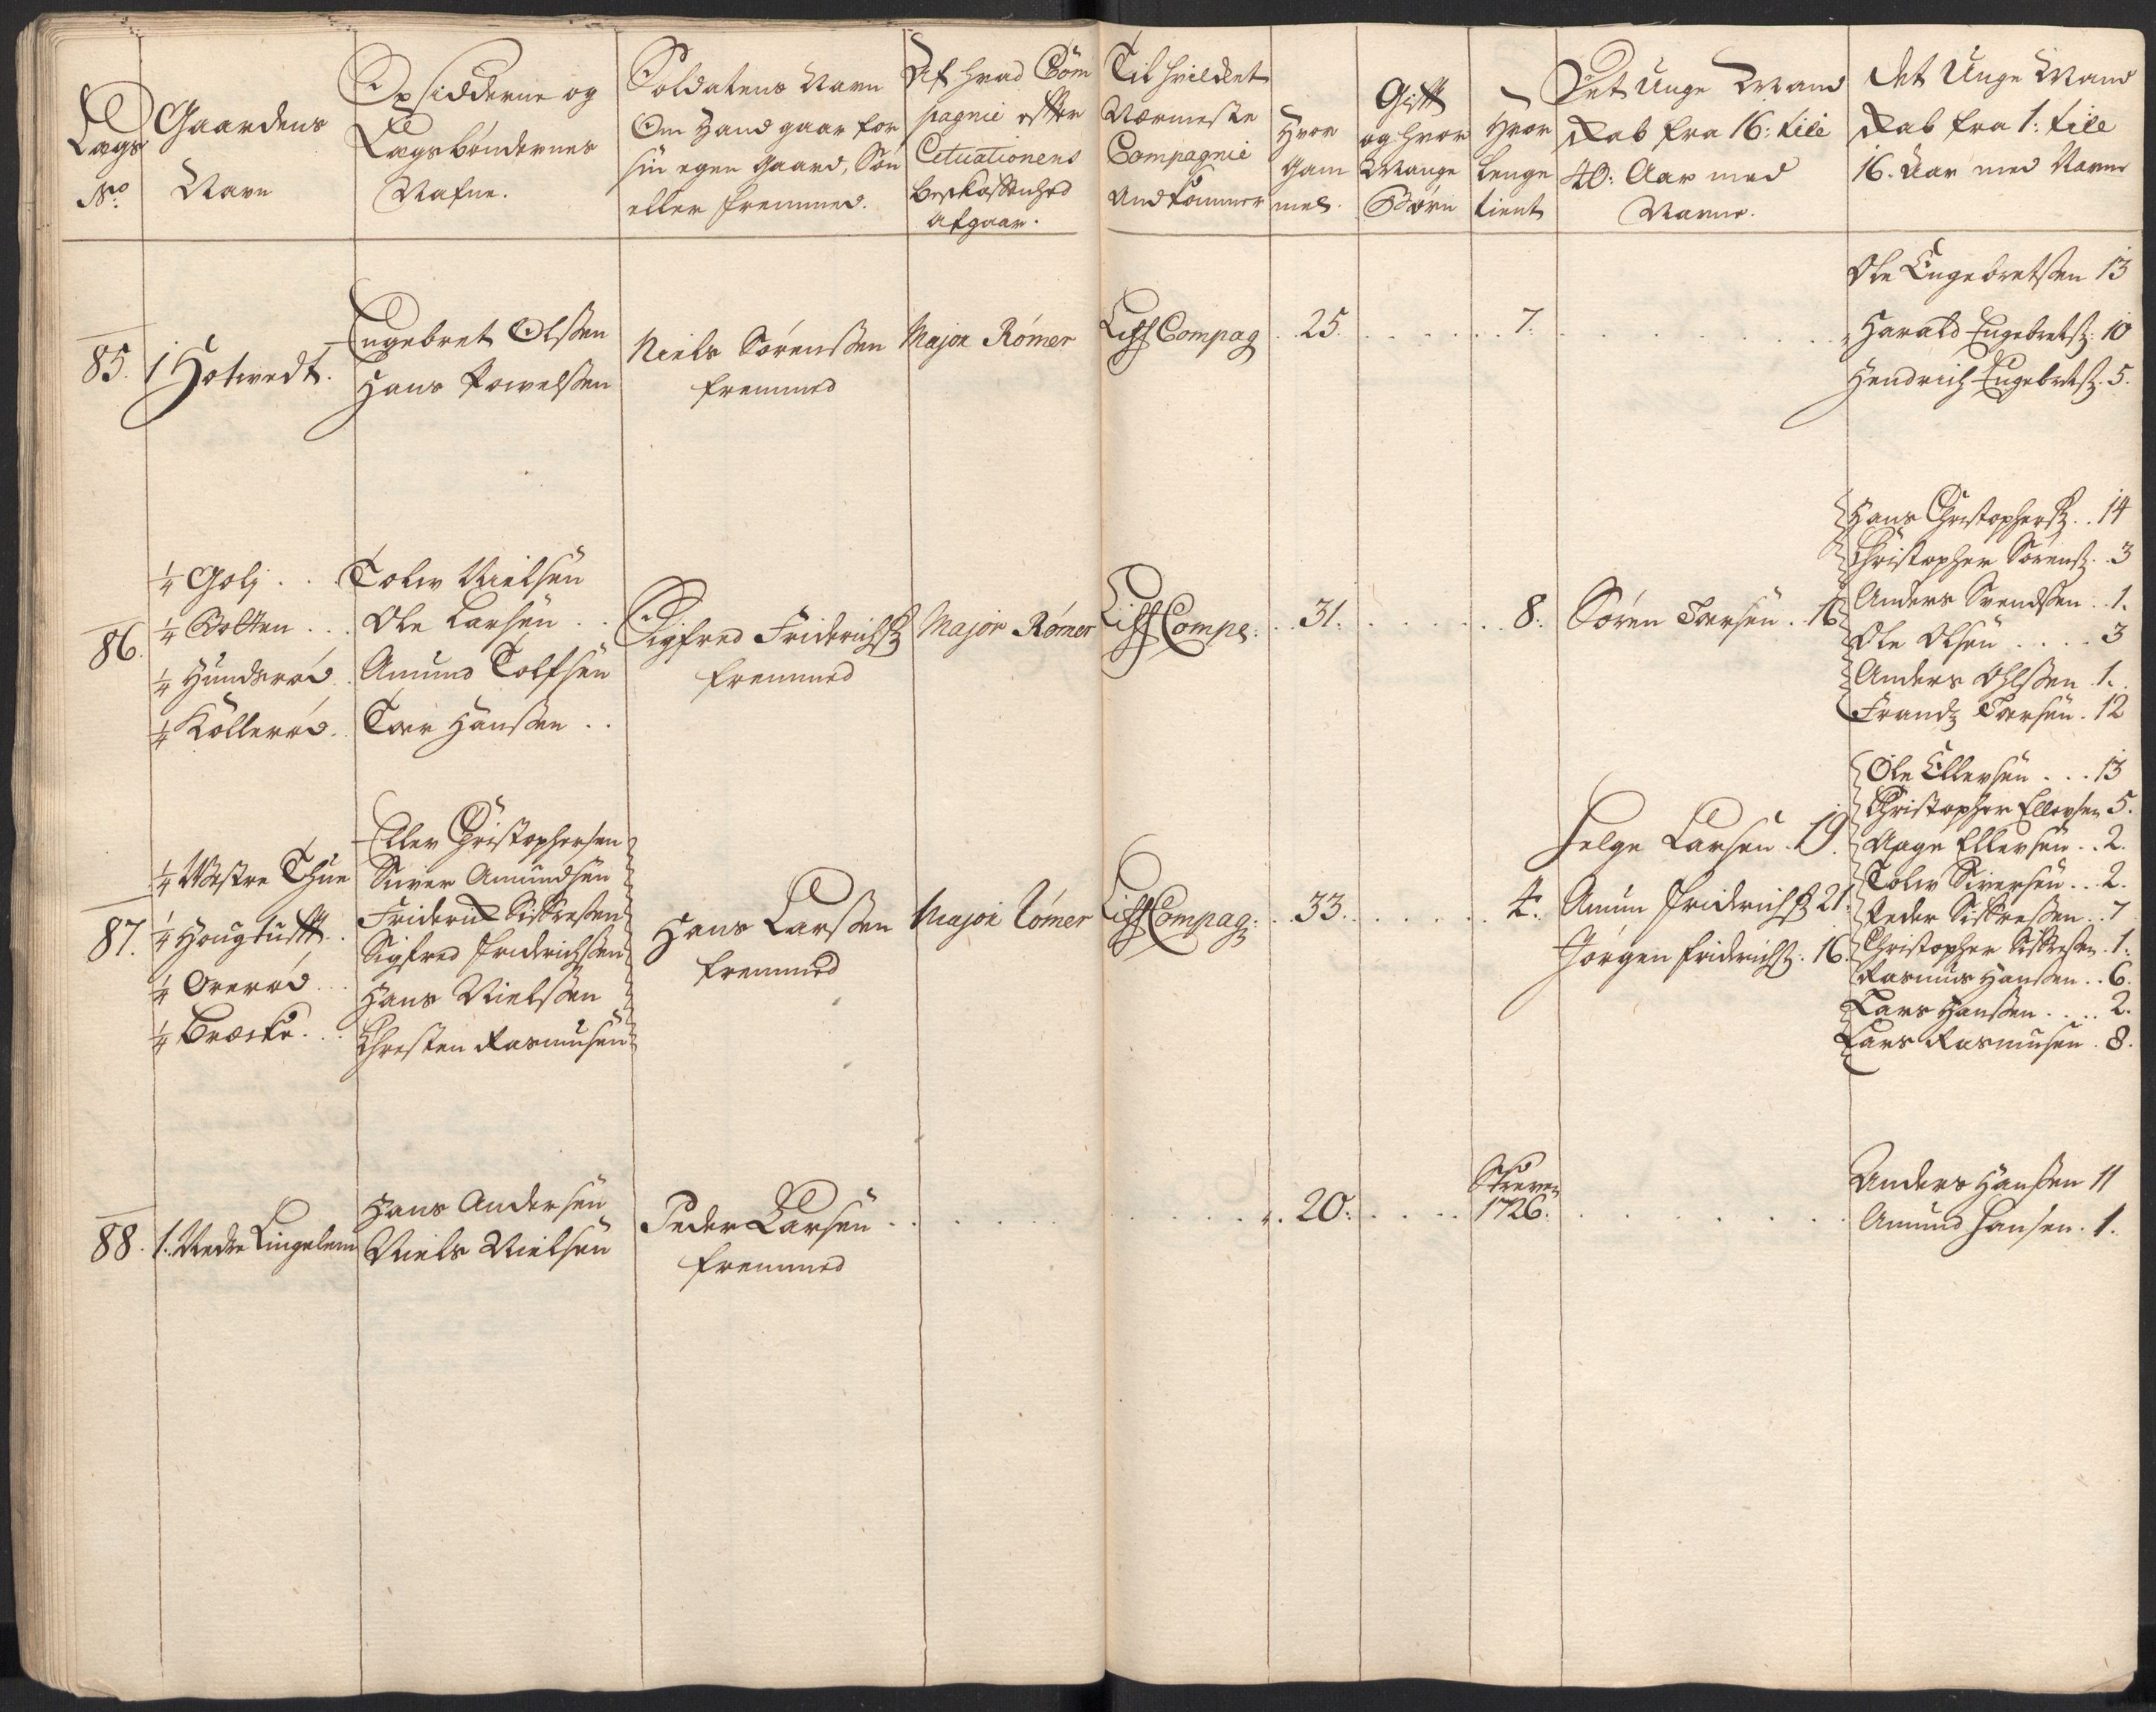 Lægs
No.
Gaardens
Navn
Opsidderne og
Lægsbøndernes
Nafne.
Soldatens Navn
Om Hand gaar for
sin egen Gaard, Søn
eller fremmed.
Af hvad Com
pagnie efter
Cituationens
beskaffenhed
afgaar.
Til hvilcket
Nærmeste
Compagnie
Andkommer
Hvor
gam
mel
Gifft
og hvor
Mange
Børn
Hvor
lenge
tient
Det Unge Mand
skab fra 16: till
40: Aar med
Navne.
det Unge Mand
skab fra 1: till
16. Aar med Navne
85. 1 Holtvedt.
Engebret Olsen
Hans Powelsen
Niels Sørenssen
fremmed
Major Rømer
Liff Compag . 25. . . . . . 7.
Ole Engebretsen 13
Harald Engebretsz: 10
Hendrich Engebretsz. 5.
86.
1/4 Golj . . .
1/4 Botten . . .
1/4 Hundsrød
1/4 Kollerød.
Tolw Nielsen
Ole Larsen . .
Amund Tolfsen
Toer Hanssen . .
Sigfred Friderichsz
fremmed
Major Rømer
Liff Compe: . . 31. . . . . . 8.
Søren Toersen . 16
Hans Christophersz . . 14
Christopher Sørensz . . 3
Anders Svendssen . . 1.
Ole Olsen . . . . 3
Anders Ohlssen . 1.
Frandz Toersen . 12
87.
1/4 Westre Thue
1/4 Hougtufft . .
1/4 Ørerød . . .
1/4 Bræcke . . .
Ellev Christophersen
Siver Amundsen
Friderich Siffresen
Sigfred Friderichssen
Hans Nielssen
Christen Rasmusen
Hans Larssen
fremmed
Major Rømer
Liff Compag: . . 33. . . . . . 4.
Helge Larsen . 19.
Amun Friderichsz 21.
Jørgen Friderichsz. 16.
Ole Ellevsen . . . 13
Christopher Ellevsen 5.
Aage Ellevsen . . 2.
Tolw Siversen . . 2.
Peder Siffressen . . 7
Christopher Siffresen . 1.
Rasmus Hanssen . . 6.
Lars Hanssen . . . . 2.
Lars Rasmusen . 8.
88. 1. Nedre Lingelem
Hans Andersen
Niels Nielsen
Peder Larsen . .
fremmed
20.
1726.
Anders Hanssen 11
Amund Hansen . 1.